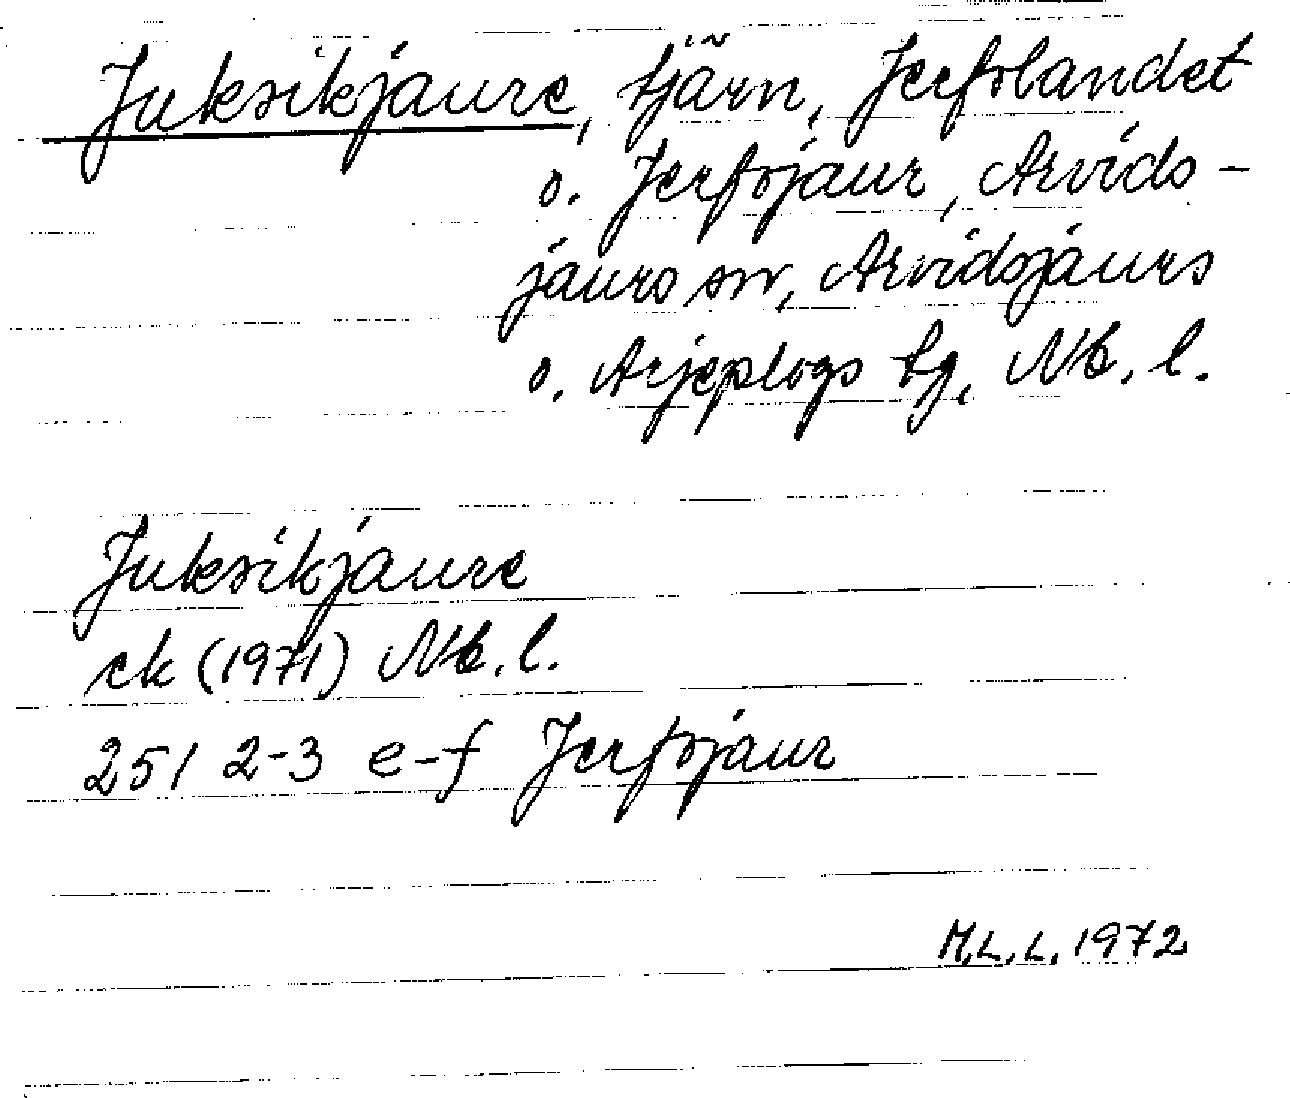 Juksikjaure, tjärn, Jerfolandet
o. Jerfojaur, Arvids-
jaurs sn, Arvidsjaurs
o. Arjeplogs tg, Nb. l.
Juksikjaure
ek (1971) Nb. l.
251 2-3 e-f Jerfojaur
M.L.L. 1972